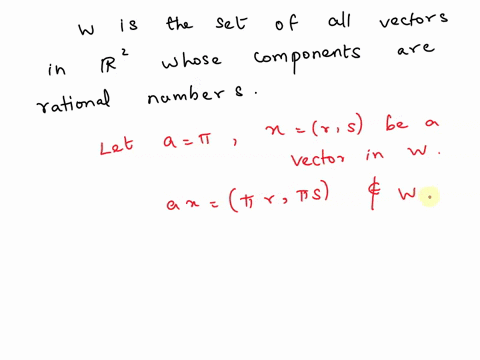 W is the set of all vectors
in ℝ² whose components are
rational numbers.
Let a = π, x = (r, s) be a
vector in W.
ax = (πr, πs) ∉ W.